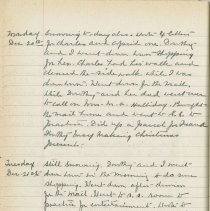 Monday Snowing to-day also. Wrote a letter
Dec 20th to Charles and copied one. Dorothy
and I went down town shopping
for her. Charles Ford her walks and
cleaned the side-walk while I was
down town. Went down for the mail,
while Dorothy and her dad went over
to call on Mrs. Halliday. Brought
the mail home and went to
practice. Did up a parcel for
Dorothy busy making Christmas
presents.
Tuesday Still snowing. Dorothy and I went
Dec 21st down town in the morning to do some
shopping. Went down after dinner
for the mail. Went to
practice for entertainment. Wrote to